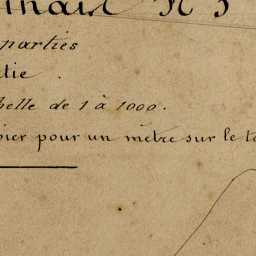 N 3
parties
tie.
elle de 1 à 1000.
pier pour un mètre sur le te